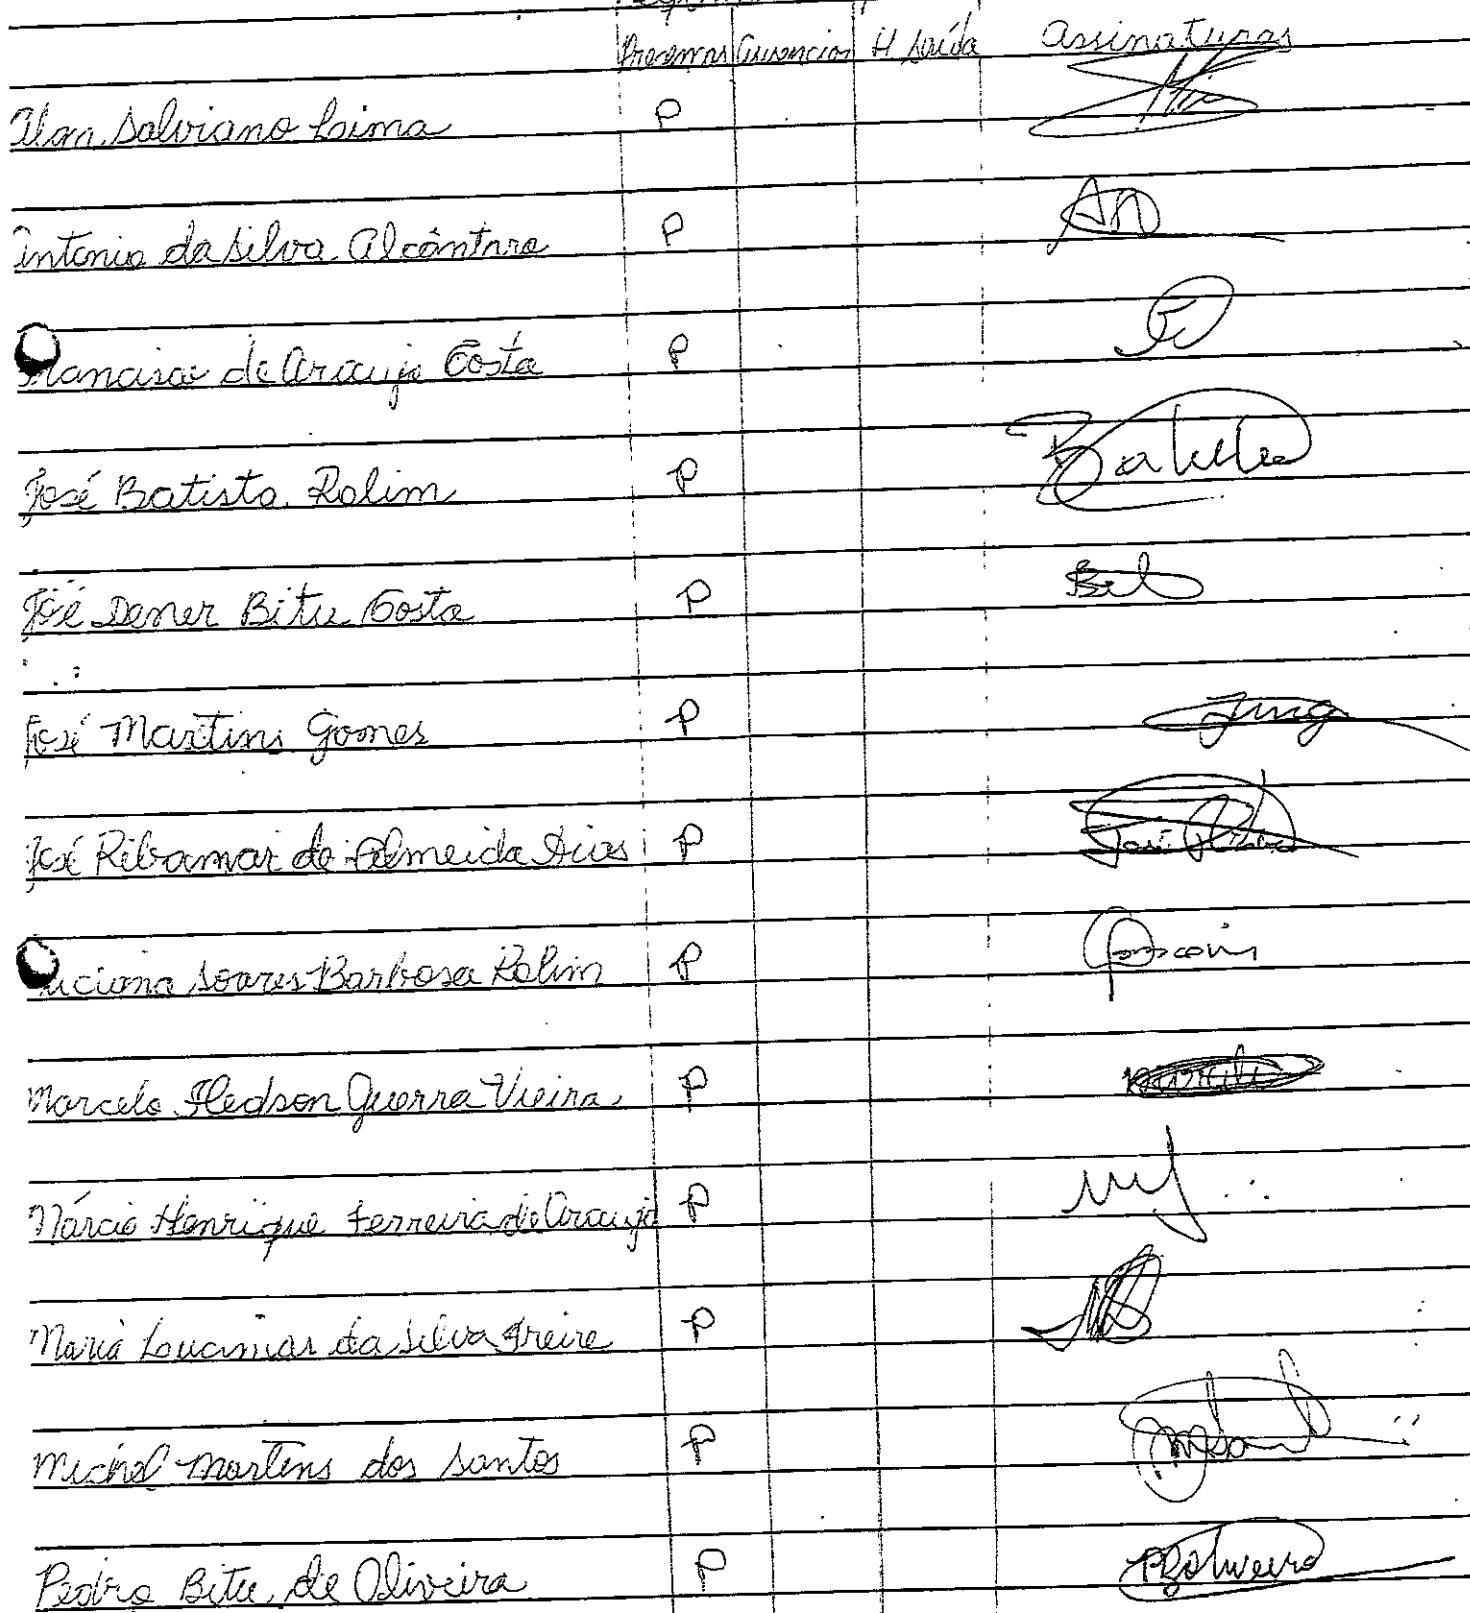 Presenças Ausencias H. Saída Assinaturas
Alan Salviano Lima P
Antonio da Silva Alcântara P
de Araujo Costa P
José Batista Rolim P Batista
José Dener Bitu Costa P
José Martins Gomes P Jmg
José Ribamar de Almeida Dias P José
Luciana Soares Barbosa Rolim P
Marcelo Hedson Guerra Vieira P
Márcio Henrique Ferreira de Araujo P
Maria Loucimar da Silva Freire P
Michel Martins dos Santos P
Pedro Bitu de Oliveira P PBOliveira